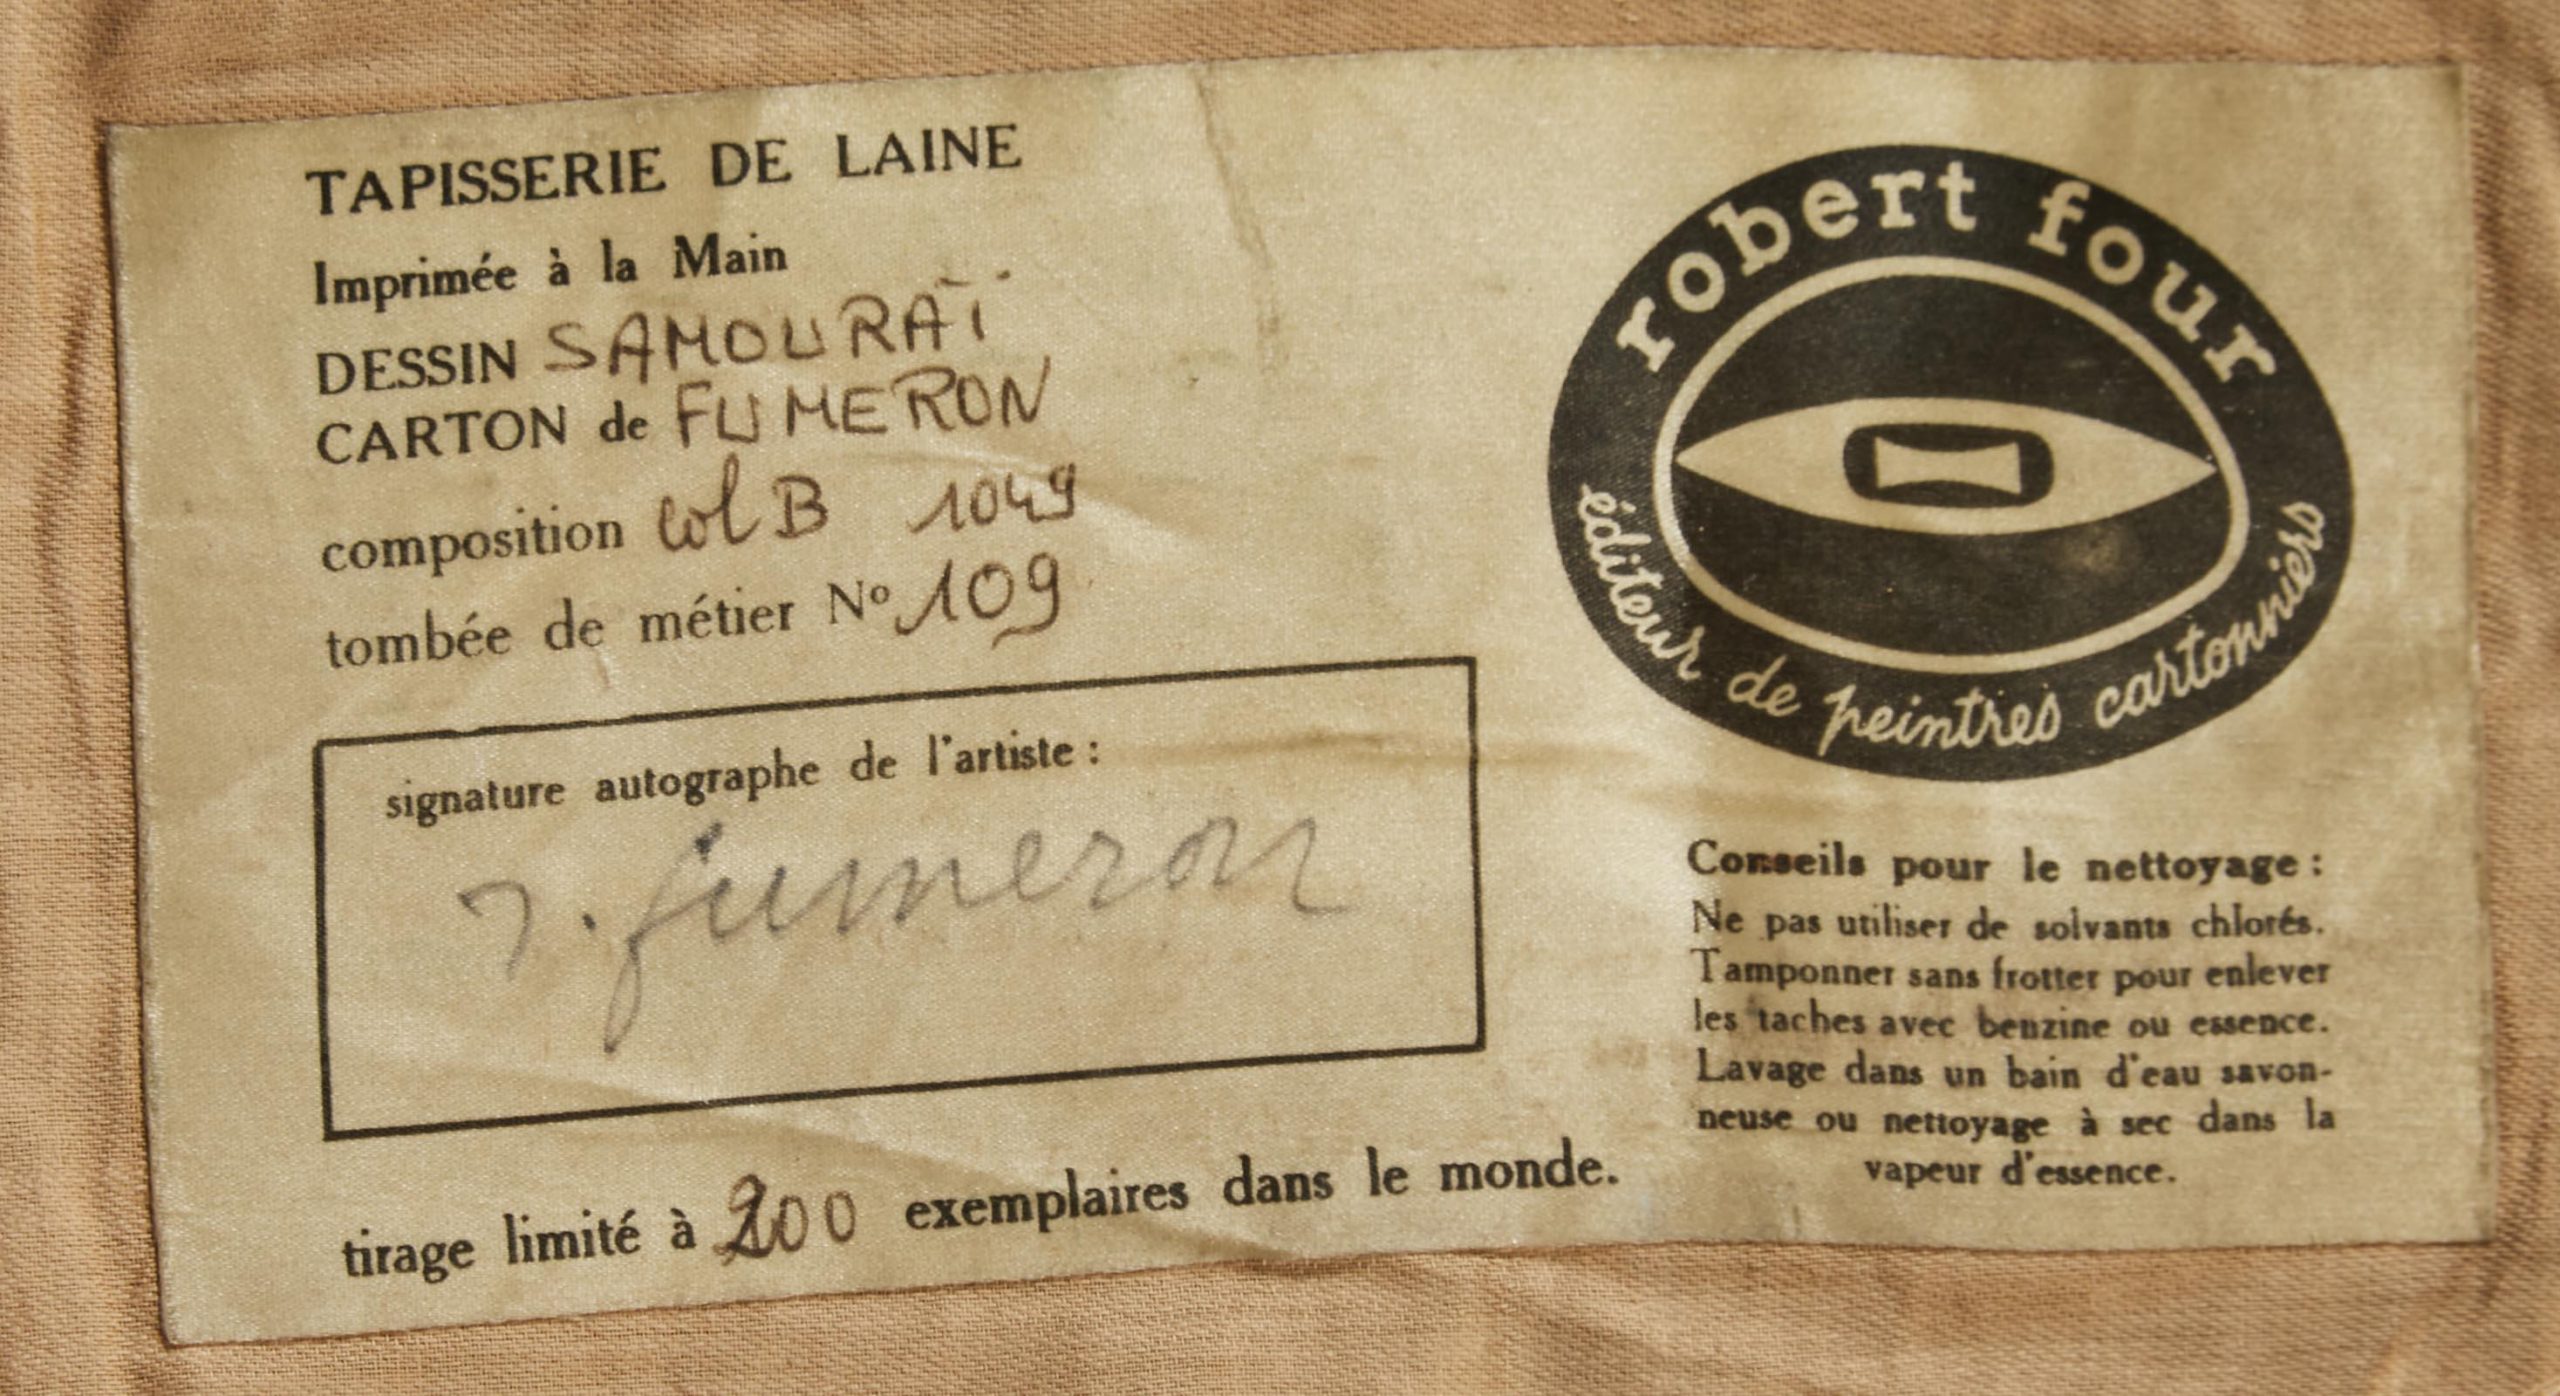 TAPISSERIE DE LAINE
Imprimée à la Main
DESSIN SAMOURAÏ
CARTON de FUMERON
composition col B 1049
tombée de métier Nº 109
signature autographe de l'artiste :
r. fumeron
tirage limité à 200 exemplaires dans le monde.
robert four
éditeur de peintres cartonniers
Conseils pour le nettoyage :
Ne pas utiliser de solvants chlorés.
Tamponner sans frotter pour enlever
les taches avec benzine ou essence.
Lavage dans un bain d'eau savon-
neuse ou nettoyage à sec dans la
vapeur d'essence.